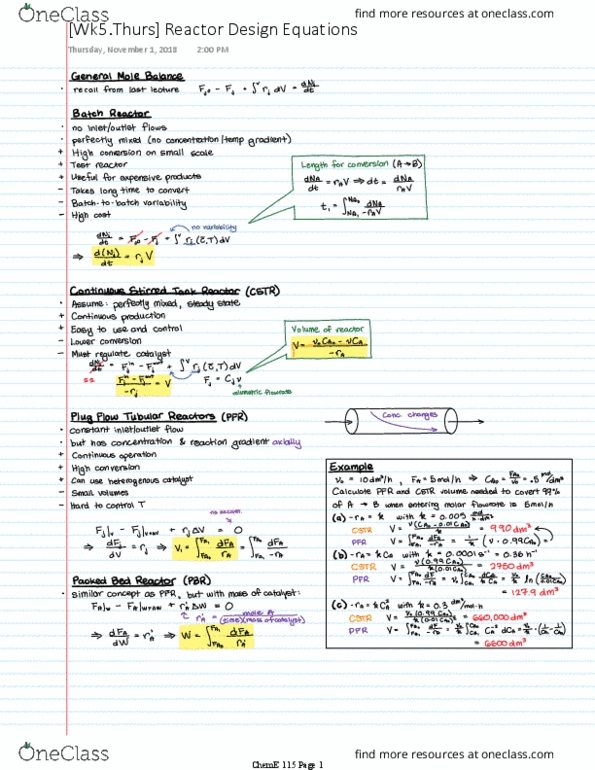 OneClass
find more resources at oneclass.com
[Wk5.Thurs] Reactor Design Equations
Thursday, November 1, 2018 2:00 PM
General Mole Balance
· recall from last lecture F_j0 - F_j + ∫^V r_j dV = dN_j/dt
Batch Reactor
· no inlet/outlet flows
· perfectly mixed (no concentration/temp gradient)
+ High conversion on small scale
+ Test reactor
+ Useful for expensive products
- Takes long time to convert
- Batch-to-batch variability
- High cost
Length for conversion (A→B)
dN_A/dt = r_A V ⇒ dt = dN_A/(r_A V)
t_1 = ∫_{N_A1}^{N_A0} dN_A/(-r_A V)
no variability
dN_j/dt = F_j0 - F_j + ∫^V r_j (c, T) dV
⇒ d(N_j)/dt = r_j V
Continuous Stirred Tank Reactor (CSTR)
· Assume: perfectly mixed, steady state
+ Continuous production
+ Easy to use and control
- Lower conversion
- Must regulate catalyst
Volume of reactor
V = (v_0 C_A0 - v C_A)/(-r_A)
dN_j/dt = F_j^in - F_j^out + ∫^V r_j (c, T) dV
ss
(F_j^in - F_j^out)/(-r_j) = V
F_j = C_j v
volumetric flowrate
Plug Flow Tubular Reactors (PFR)
· constant inlet/outlet flow
· but has concentration & reaction gradient axially
+ Continuous operation
+ High conversion
+ Can use heterogenous catalyst
- Small volumes
- hard to control T
Conc. changes
F_j|_V - F_j|_{V+ΔV} + r_j ΔV = 0
⇒ dF_j/dV = r_j ⇒ V_1 = ∫_{F_A0}^{F_A1} dF_A/r_A = ∫_{F_A1}^{F_A0} dF_A/-r_A
Packed Bed Reactor (PBR)
· similar concept as PFR, but with mass of catalyst:
F_A|_W - F_A|_{W+ΔW} + r'_A ΔW = 0
r'_A = mole A/(time)(mass of catalyst)
⇒ dF_A/dW = r'_A ⇒ W = ∫_{F_A0}^{F_A1} dF_A/r'_A
Example
v_0 = 10 dm³/h, F_A = 5 mol/h ⇒ C_A0 = F_A0/v_0 = .5 mol/dm³
Calculate PFR and CSTR volume needed to covert 99%
of A → B when entering molar flowrate is 5mol/h
(a) -r_A = k with k = 0.005
CSTR V = v(C_A0 - 0.01 C_A0)/k = 990 dm³
PFR
(b) -r_A = k C_A with k = 0.0001 s⁻¹ = 0.36 h⁻¹
CSTR = 2750 dm³
PFR
= 127.9 dm³
(c) -r_A = k C_A² with k = 0.3 dm³/mol·h
CSTR = 660,000 dm³
PFR
= 6600 dm³
OneClass
find more resources at oneclass.com
ChemE 115 Page 1